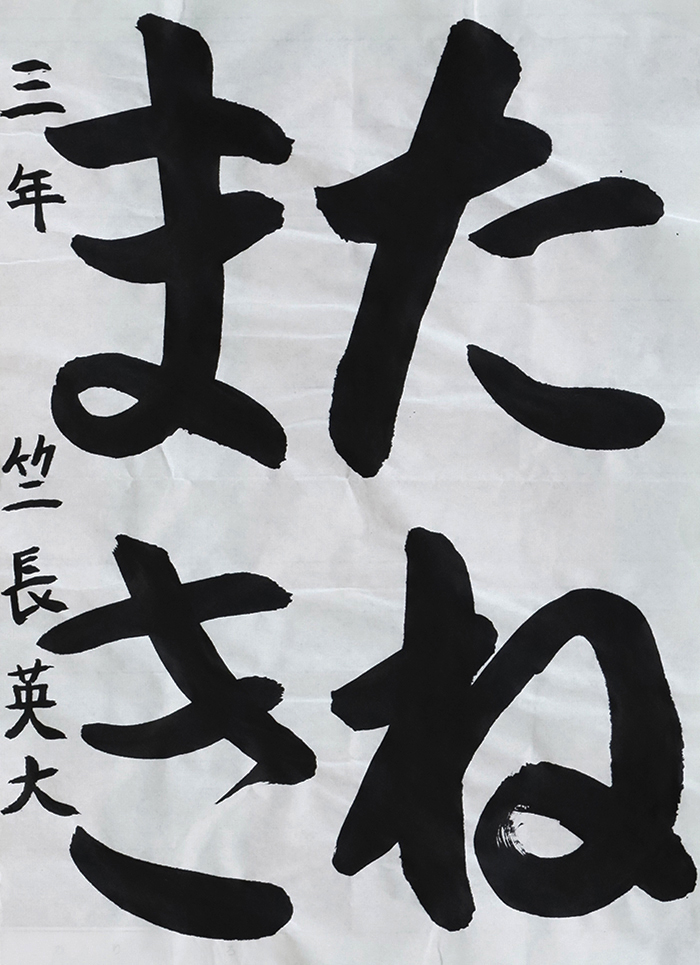 たね
まき
三年 竺長英大